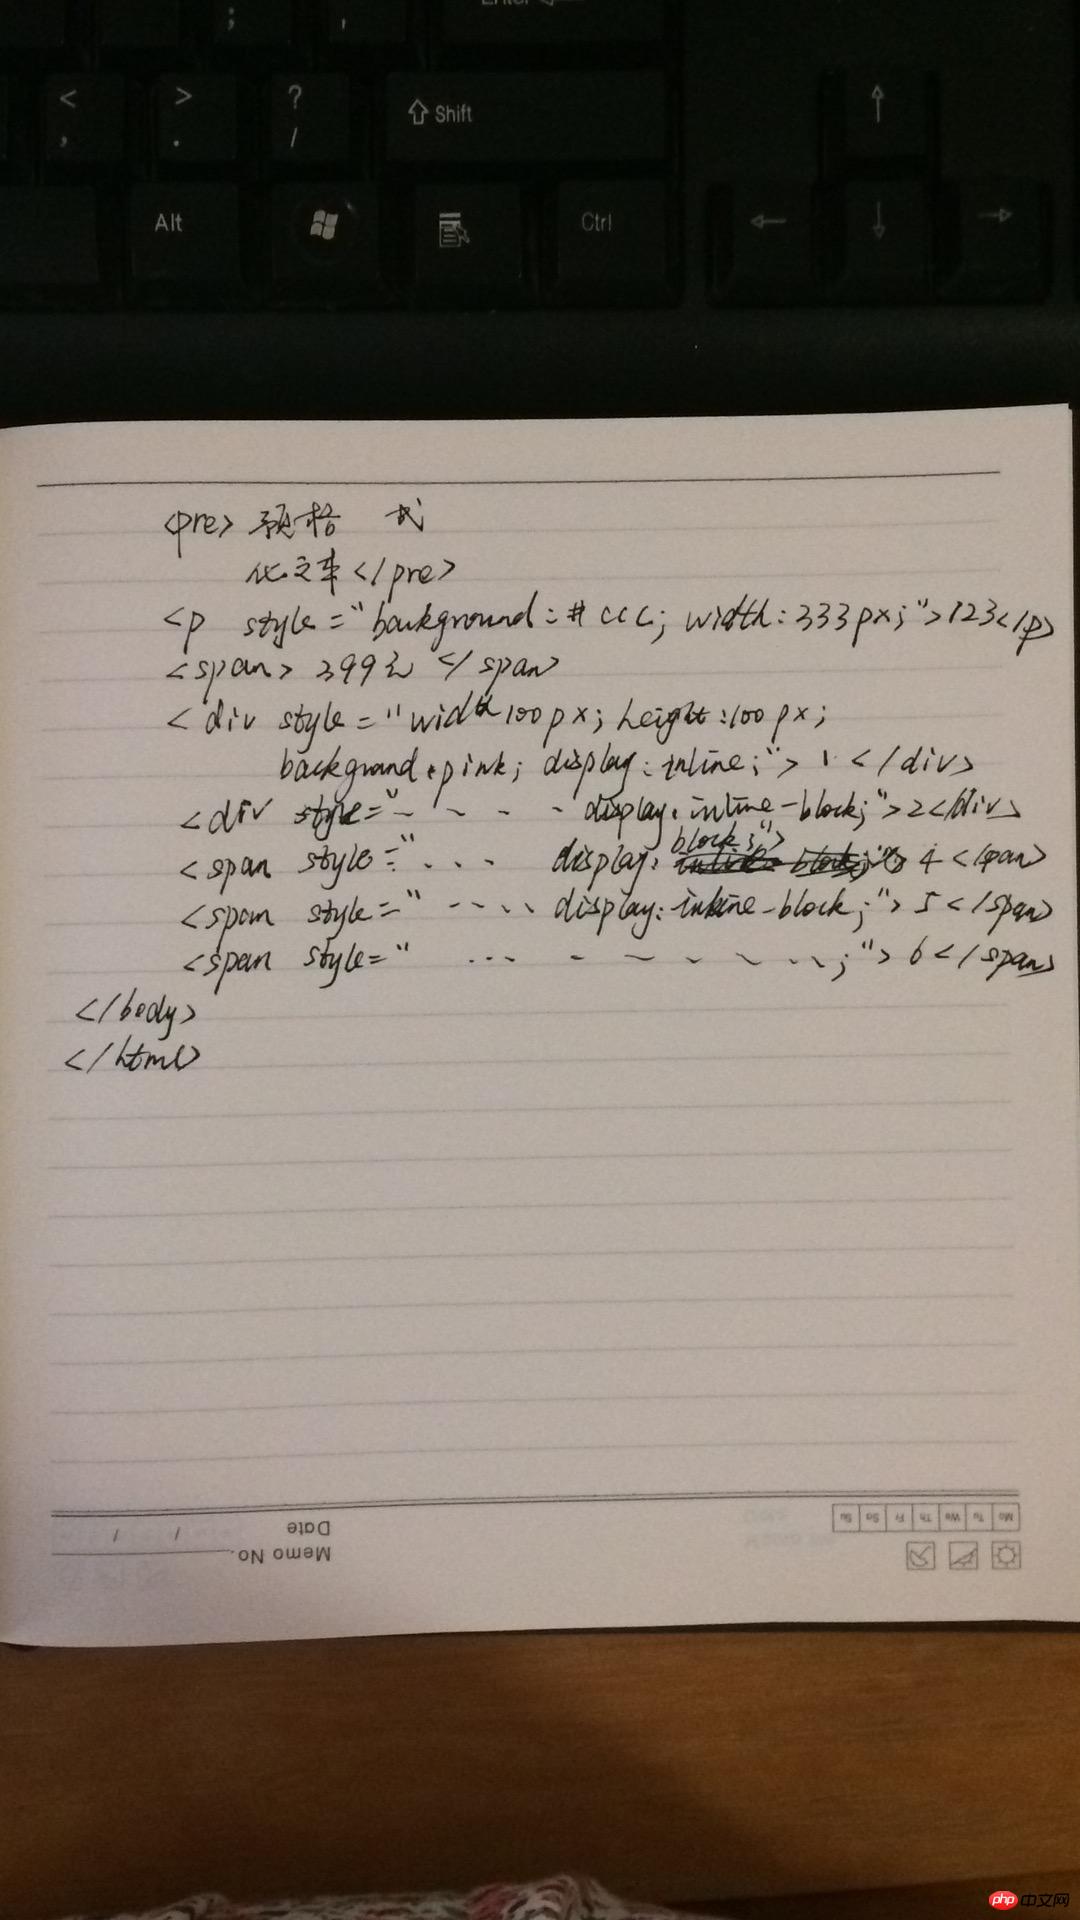 Enter
;
,
<
,
>
.
?
/
Shift
Alt
Ctrl
<pre> 预格 式
化文本</pre>
<p style="background:#ccc; width:333px;">123</p>
<span> 399 </span>
<div style="width 100px; height:100px;
background:pink; display:inline;"> 1 </div>
<div style="- - - - display:inline-block;">2</div>
block;">
<span style="... display: 4 </span>
<span style="---- display:inline-block;"> 5 </span>
<span style=" ... - - - - ...;"> 6 </span>
</body>
</html>
Mo Tu We Th Fr Sa Su
Memo No.
Date / /
php 中文网